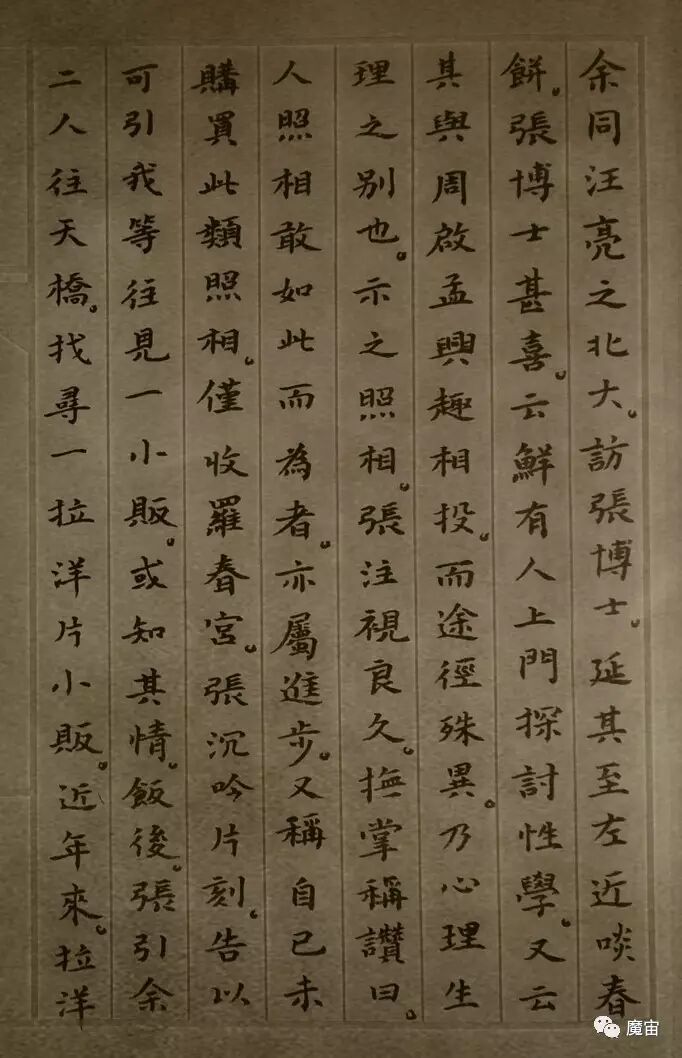 余同汪亮之北大。訪張博士。延其至左近啖春
餅。張博士甚喜。云鮮有人上門探討性學。又云
其與周啟孟興趣相投。而途徑殊異。乃心理生
理之別也。示之照相。張注視良久。撫掌稱讚曰。
人照相敢如此而為者。亦屬進步。又稱自己未
購買此類照相。僅收羅春宮。張沉吟片刻。告以
可引我等往見一小販。或知其情。飯後。張引余
二人往天橋。找尋一拉洋片小販。近年來。拉洋
魔宙